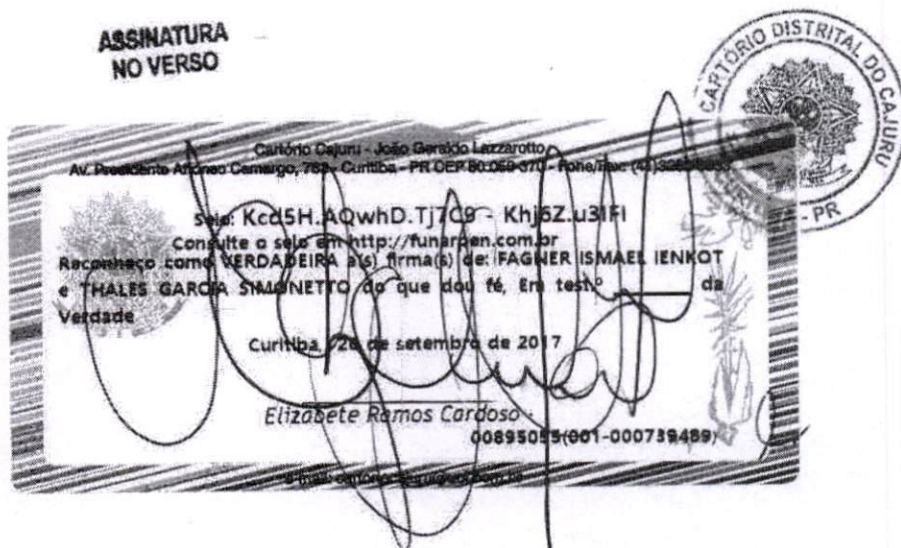 ASSINATURA
NO VERSO
CARTÓRIO DISTRITAL DO CAJURU
- PR
Cartório Cajuru - João Geraldo Lazzarotto
Av. Presidente Affonso Camargo, - Curitiba - PR CEP 80.050-370 - Fone/Fax: (41)
Selo: Kcd5H.AQwhD.Tj7C9 - Khj6Z.u3IFI
Consulte o selo em http://funarpen.com.br
Reconheço como VERDADEIRA a(s) firma(s) de: FAGNER ISMAEL IENKOT
e THALES GARCIA SIMONETTO do que dou fé, Em test.º ________ da
Verdade
Curitiba, de setembro de 2017
Elizabete Ramos Cardoso -
00895055(001-000739489)